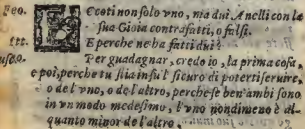 Feo. Eccoti non solo vno, ma dui Anelli con la
sua Gioia contrafatti, o falsi.
ttt. E perche ne ha fatti dui?
uſeo. Per guadagnar, credo io, la prima coſa,
e poi, perche tu ſtia inſu'l ſicuro di potertiſeruire,
o del vno, o del'altro, perche ſe ben'ambi ſono
in vn modo medeſimo, l'vno nondimeno è al-
quanto minor de l'altro.